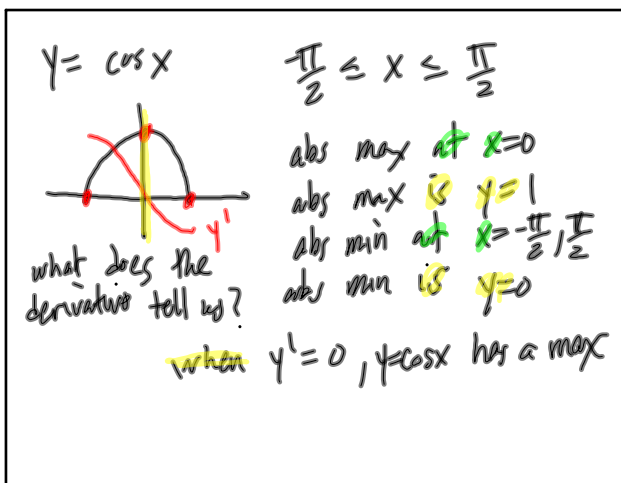 y = cos x
-π/2 ≤ x ≤ π/2
abs max at x=0
abs max is y=1
abs min at x=-π/2, π/2
abs min is y=0
y'
what does the
derivative tell us?
when y'=0, y=cosx has a max